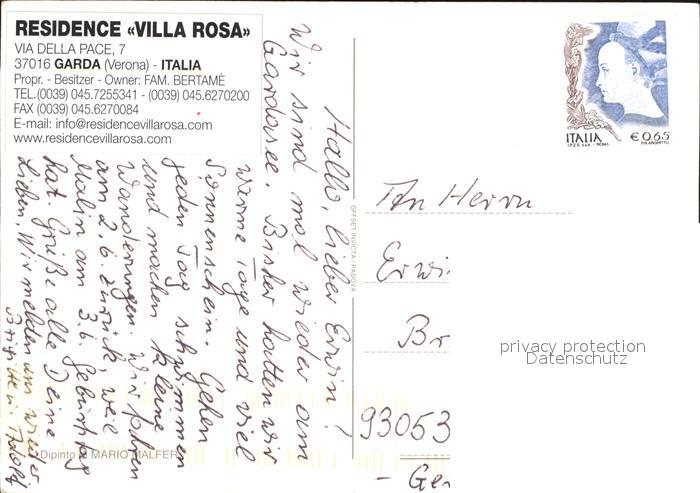 RESIDENCE «VILLA ROSA»
VIA DELLA PACE, 7
37016 GARDA (Verona) - ITALIA
Propr. - Besitzer - Owner: FAM. BERTAMÈ
TEL.(0039) 045.7255341 - (0039) 045.6270200
FAX (0039) 045.6270084
E-mail: info@residencevillarosa.com
www.residencevillarosa.com
Hallo, lieber Erwin!
Wir sind mal wieder am
Gardasee. Bisher hatten wir
warme Tage und viel
Sonnenschein. Gehen
jeden Tag schwimmen
und machen kleine
Wanderungen. Wir fahren
am 2.6. zurück, weil
am 3.6. Geburtstag
hat. Grüße alle Deine
Lieben. Wir melden uns wieder
Brigitte u.
Dipinto di MARIO MALFER
OFFSET INVICTA / PADOVA
ITALIA € 0,65
I.P.Z.S. S.p.A. - ROMA
An Herrn
Erwi
Br
93053
- Ger
privacy protection
Datenschutz